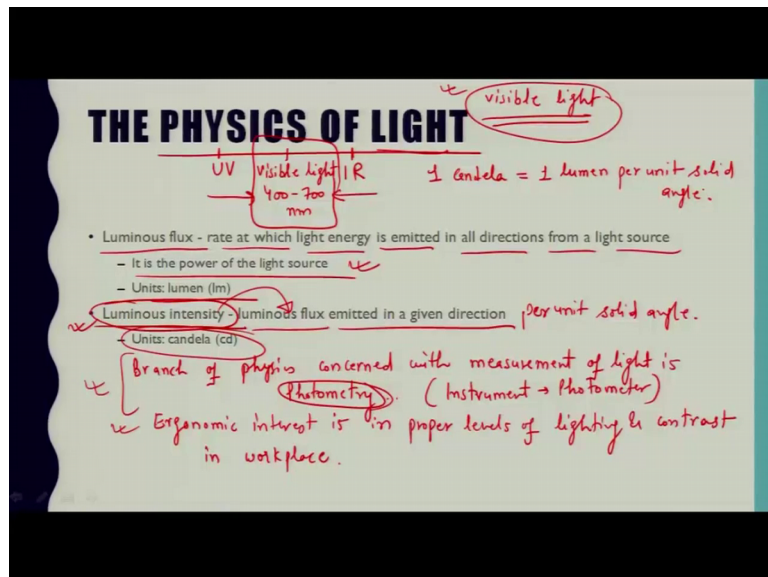 visible light
THE PHYSICS OF LIGHT
UV visible light IR
400-700
nm
1 candela = 1 lumen per unit solid
angle.
• Luminous flux - rate at which light energy is emitted in all directions from a light source
– It is the power of the light source
– Units: lumen (lm)
• Luminous intensity - luminous flux emitted in a given direction per unit solid angle.
– Units: candela (cd)
Branch of physics concerned with measurement of light is
Photometry. (Instrument → Photometer)
Ergonomic interest is in proper levels of lighting & contrast
in workplace.